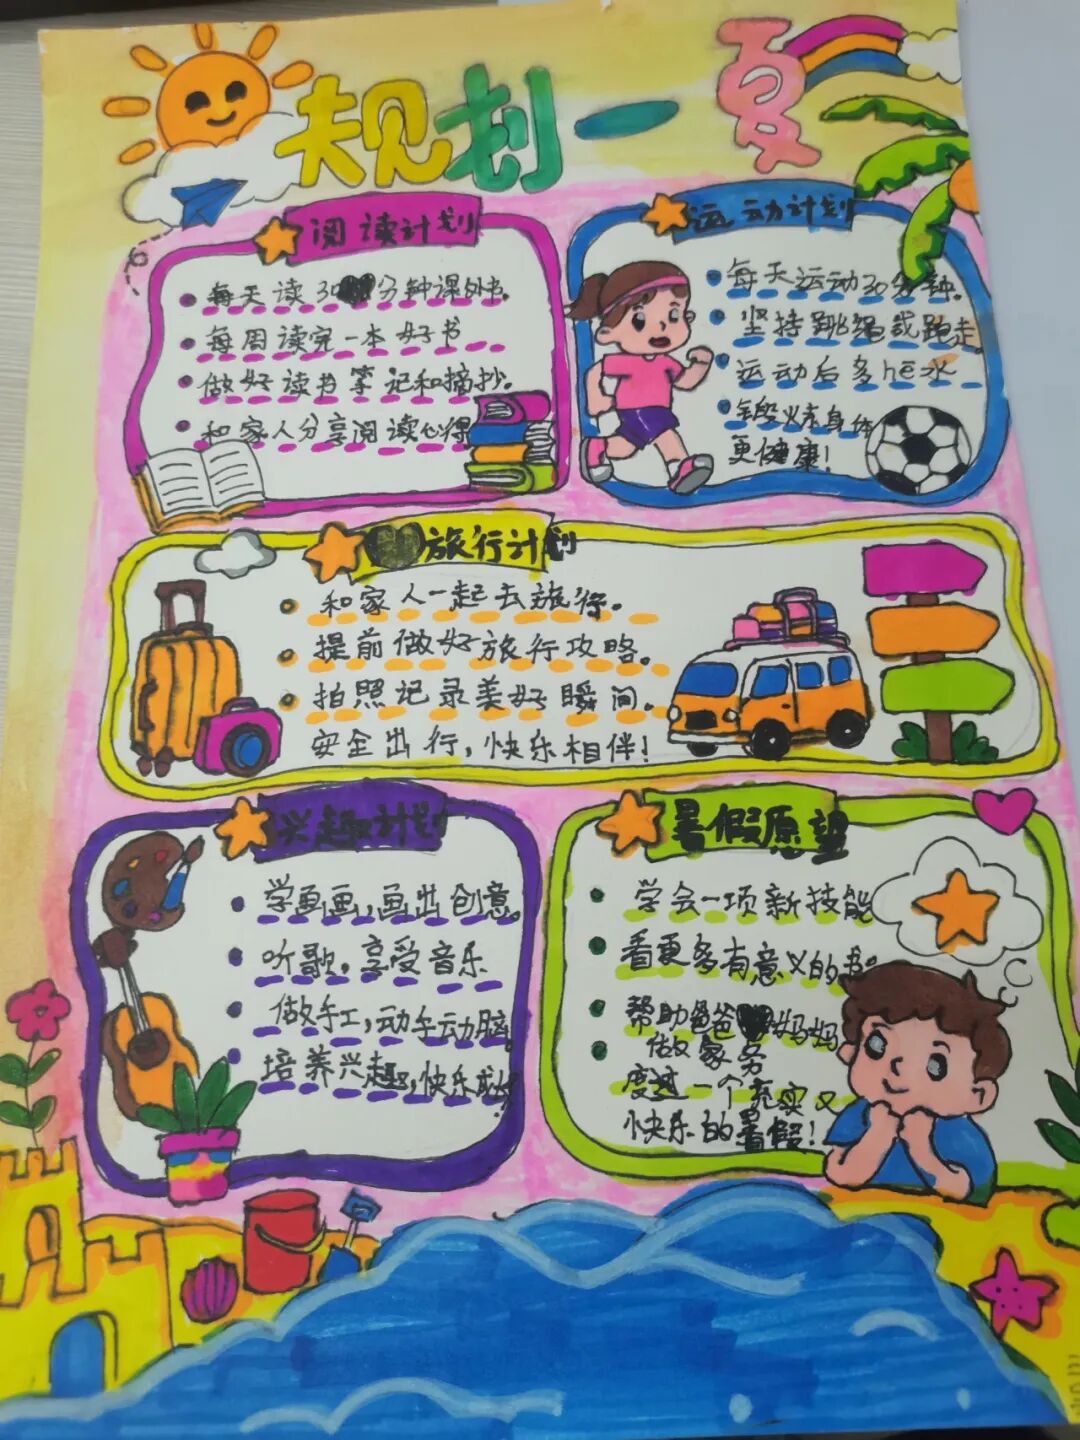 规划一夏
阅读计划
每天读30分钟课外书。
每周读完一本好书
做好读书笔记和摘抄。
和家人分享阅读心得
运动计划
每天运动30分钟。
坚持跳绳或跑走。
运动后多he水
身体
更健康!
旅行计划
和家人一起去旅行。
提前做好旅行攻略。
拍照记录美好瞬间。
安全出行,快乐相伴!
兴趣计划
学画画,画出创意。
听歌,享受音乐
做手工,动手动脑。
培养兴趣,快乐成长
暑假愿望
学会一项新技能
看更多有意义的书。
帮助爸爸妈妈
做家务
度过一个充实又
快乐的暑假!